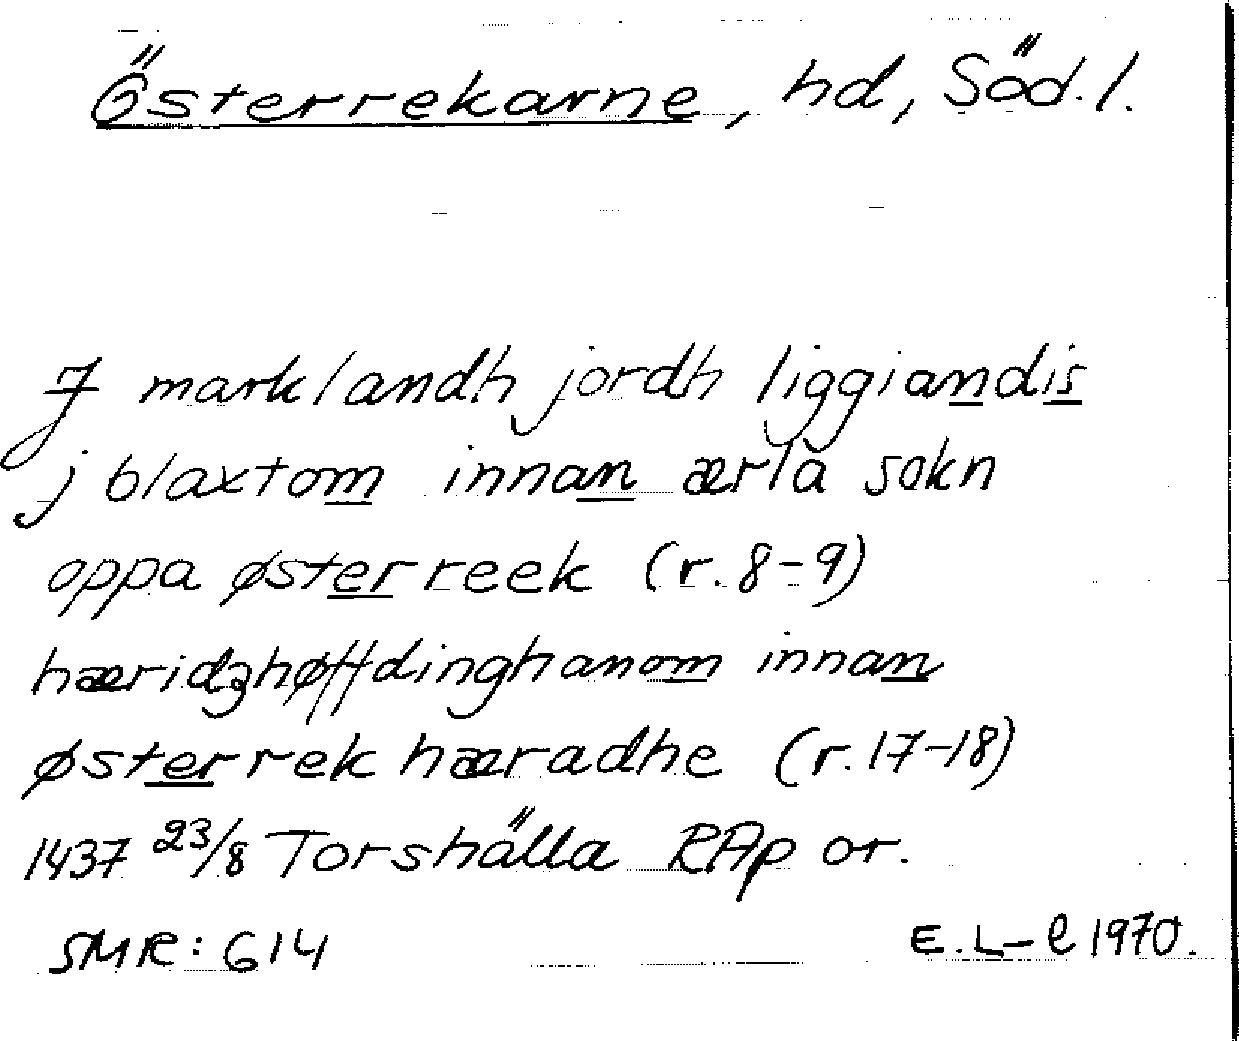 Österrekarne, hd, Söd.l.
J marklandh jordh liggiandis
j blaxtom innan ærla sokn
oppa østerreek (r. 8-9)
hæridzhøffdinghanom innan
østerrek hæradhe (r. 17-18)
1437 23/8 Torshälla RAp or.
SMR: 614 E. L-e 1970.